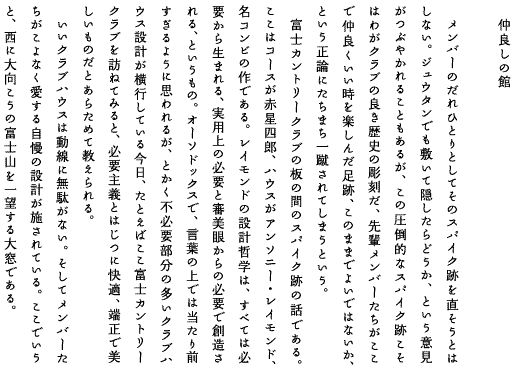 仲良しの館
メンバーのだれひとりとしてそのスパイク跡を直そうとは
しない。ジュウタンでも敷いて隠したらどうか、という意見
がつぶやかれることもあるが、この圧倒的なスパイク跡こそ
はわがクラブの良き歴史の彫刻だ、先輩メンバーたちがここ
で仲良くいい時を楽しんだ足跡、このままでよいではないか、
という正論にたちまち一蹴されてしまうという。
富士カントリークラブの板の間のスパイク跡の話である。
ここはコースが赤星四郎、ハウスがアンソニー・レイモンド、
名コンビの作である。レイモンドの設計哲学は、すべては必
要から生まれる、実用上の必要と審美眼からの必要で創造さ
れる、というもの。オーソドックスで、言葉の上では当たり前
すぎるように思われるが、とかく不必要部分の多いクラブハ
ウス設計が横行している今日、たとえばここ富士カントリー
クラブを訪ねてみると、必要主義とはじつに快適、端正で美
しいものだとあらためて教えられる。
いいクラブハウスは動線に無駄がない。そしてメンバーた
ちがこよなく愛する自慢の設計が施されている。ここでいう
と、西に大向こうの富士山を一望する大窓である。